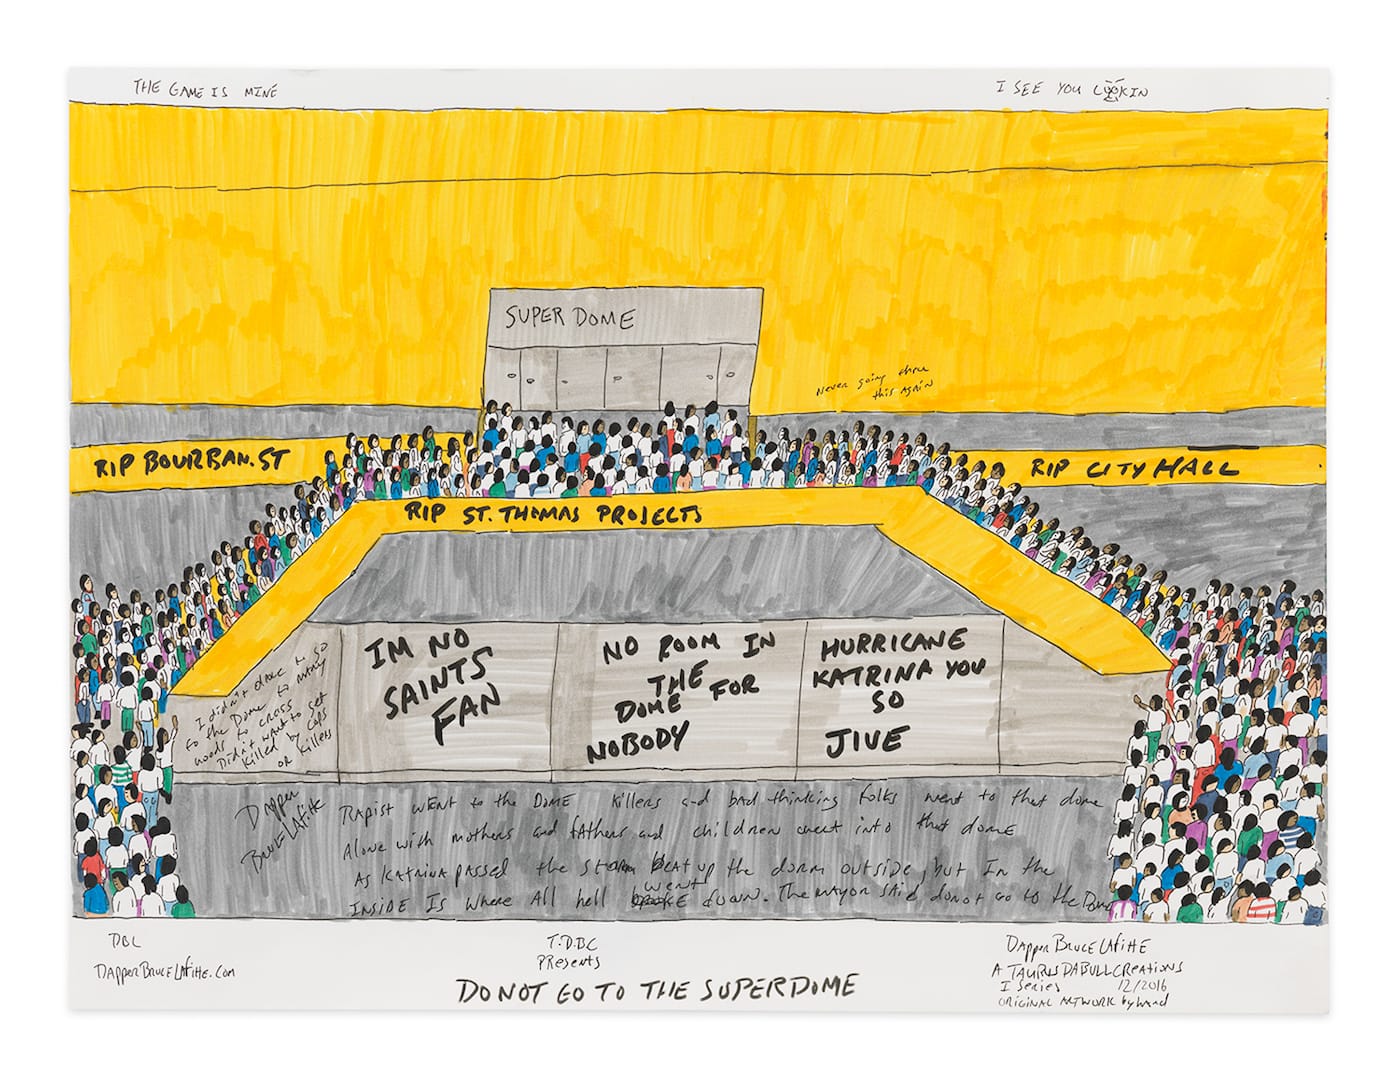 THE GAME IS MINE
I SEE YOU LOOKIN
SUPER DOME
Never going threw
this AgAiN
RIP BOURBAN.ST
RIP CITY HALL
RIP ST. THOMAS PROJECTS
I didn't dare to so
to the Dome to many
woods to cross
Didn't want to get
Killed by cops
or Killers
IM NO
SAINTS
FAN
NO ROOM IN
THE
DOME FOR
NOBODY
HURRICANE
KATRINA YOU
SO
JIVE
DAPPer
Bruce LAfitte
RApist WENT to the DOME Killers and bad thinking folks went to that dome
Alone with mothers and fAthers and children went into that dome
As KAtrinA pAssed the storm beat up the dorm outside, but In the
INside Is where All hell went down. The mAyor SAid donot Go to the Dome
DBL
DApperBruceLAfitte.Com
T.D.B.C
PResents
DO NOT GO TO THE SUPERDOME
DApper Bruce LAfitte
A TAURUS DABULL CREATIONS
I Series 12/2016
ORIGINAL ARTWORK by hand